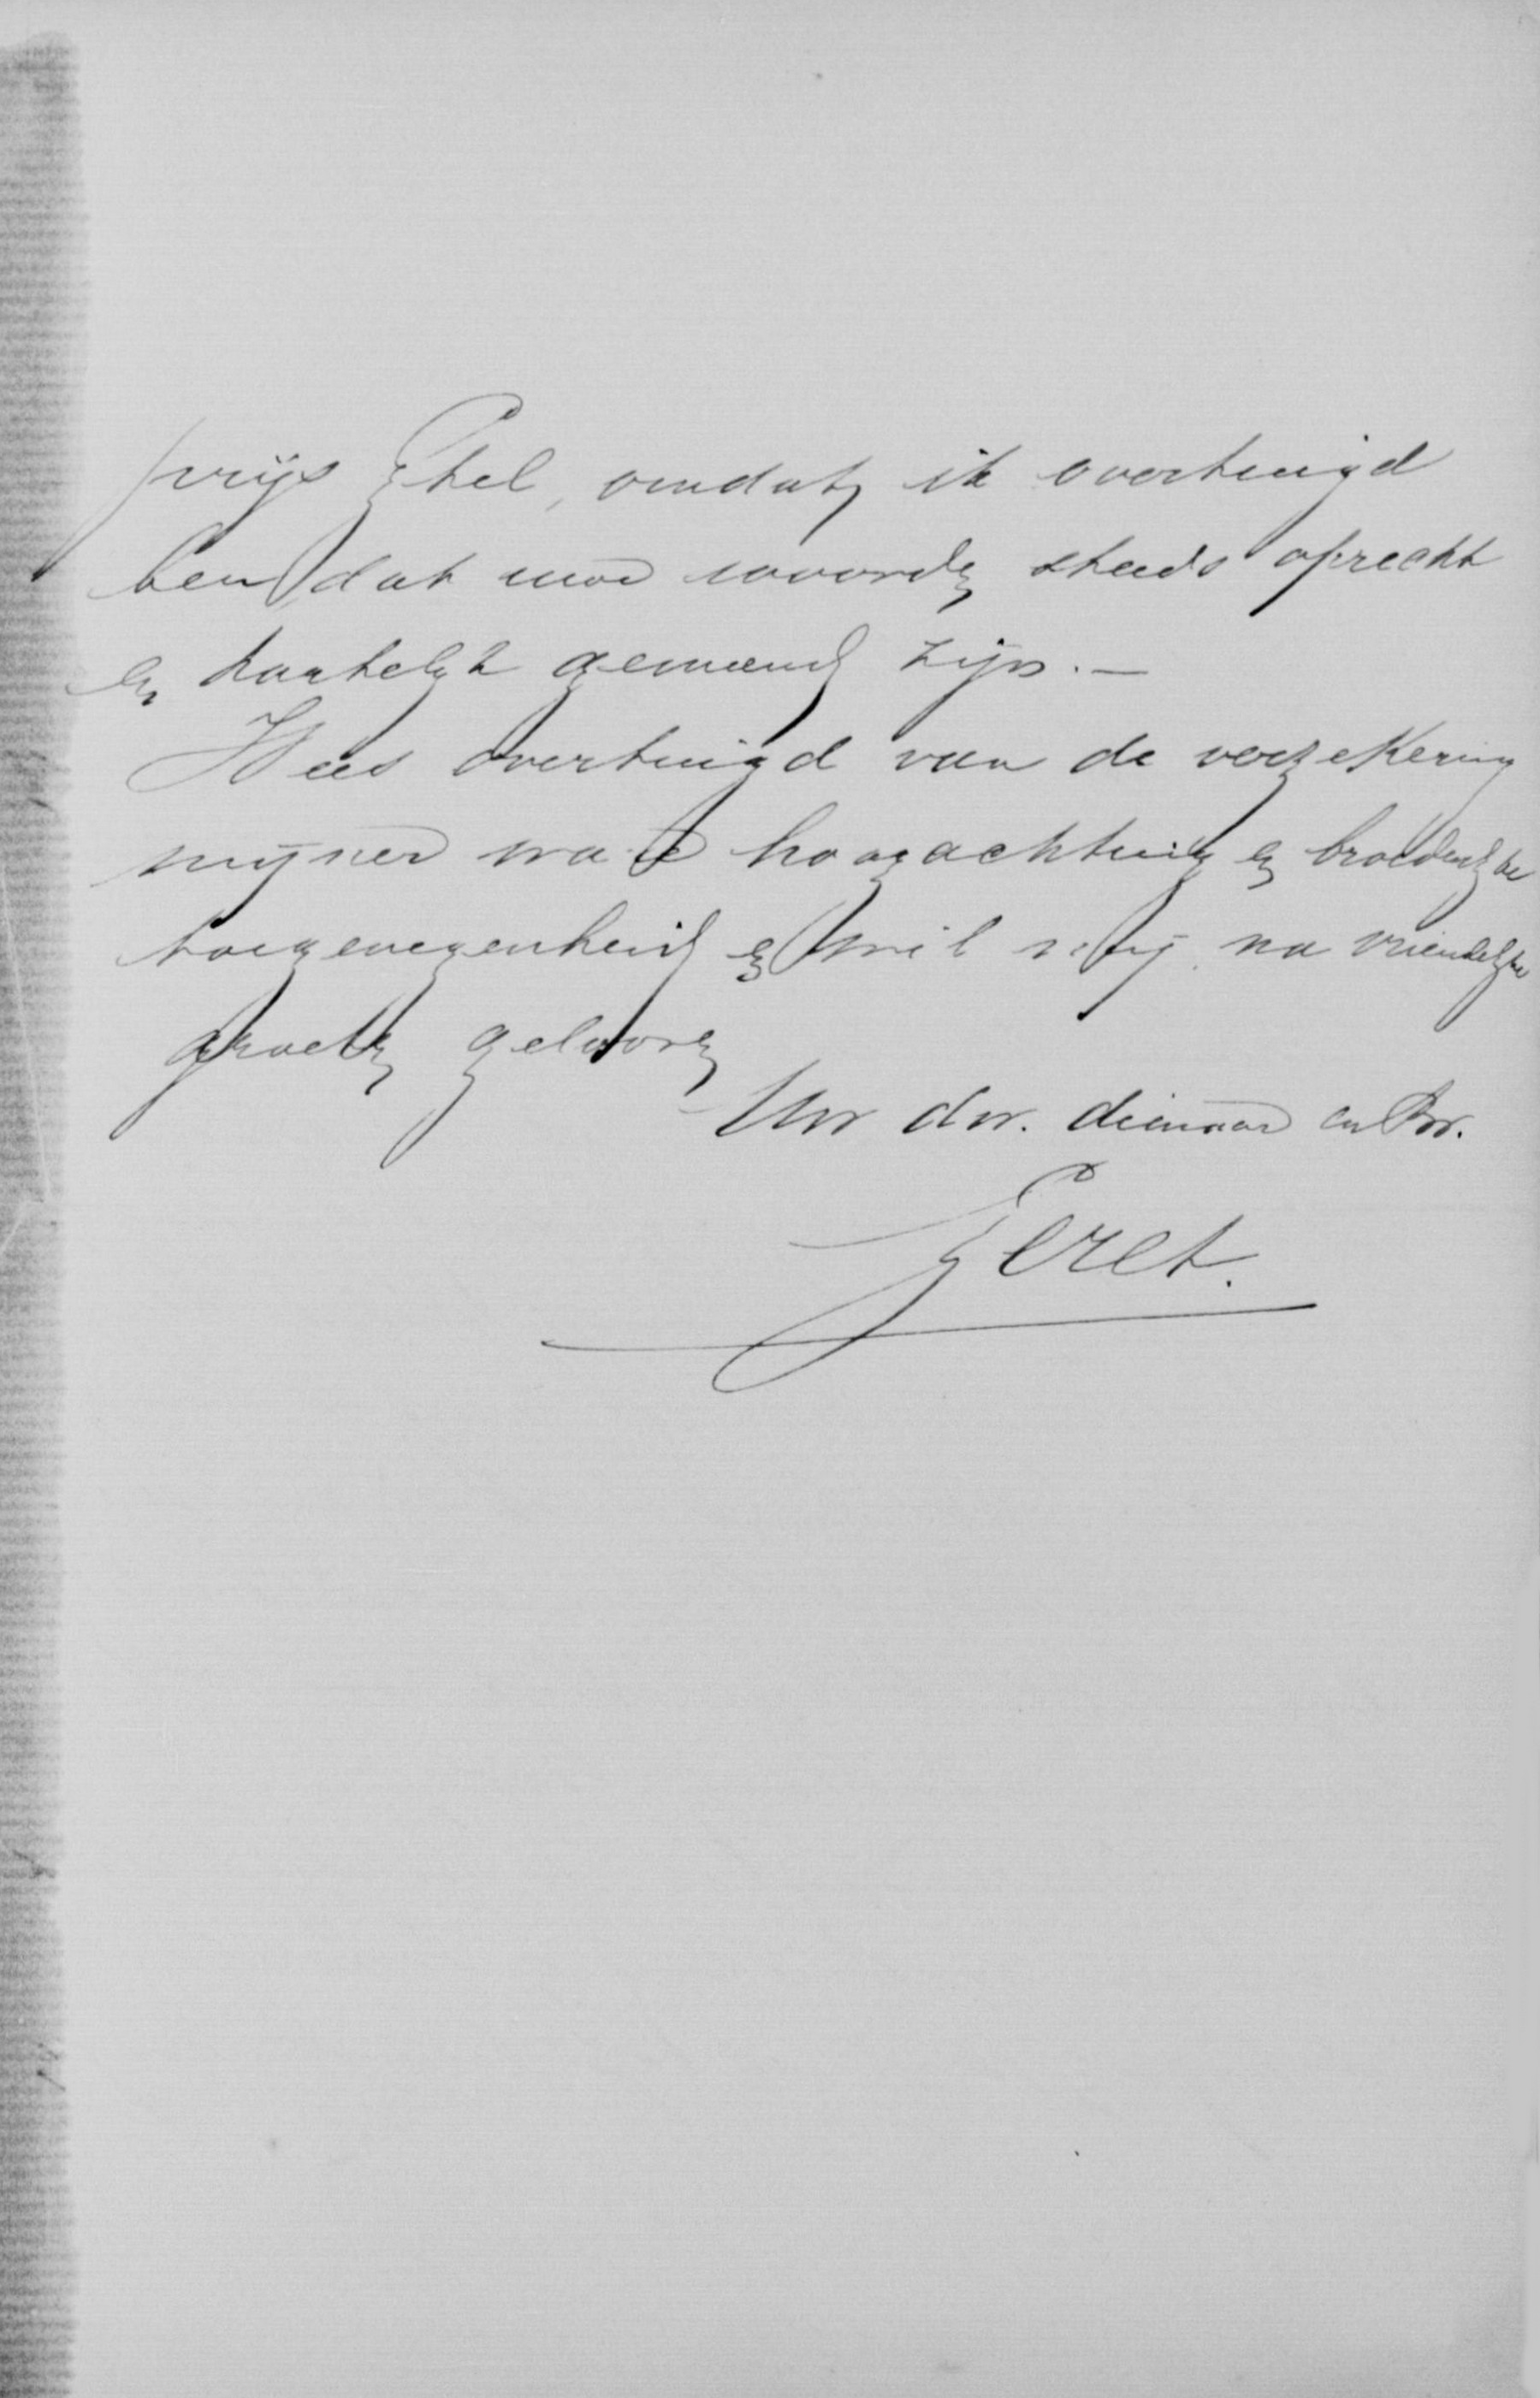 prijs stel, omdat ik overtuigd
ben, dat uwe woorden steeds oprecht
en hartelijk gemeend zijn. —
Wees overtuigd van de verzekering
mijner ware hoogachting en broederlijke
toegenegenheid en wil mij na vriendelijke
groeten gelooven
Uw dw. dienaar en Br.
Geret.